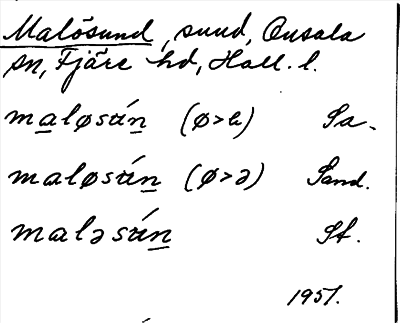 Malösund, sund, Onsala
sn, Fjäre hd, Hall. l.
maløsún (ø>ə) Sa.
maløsún (ø>ə) Sand.
maləsún St.
1951.